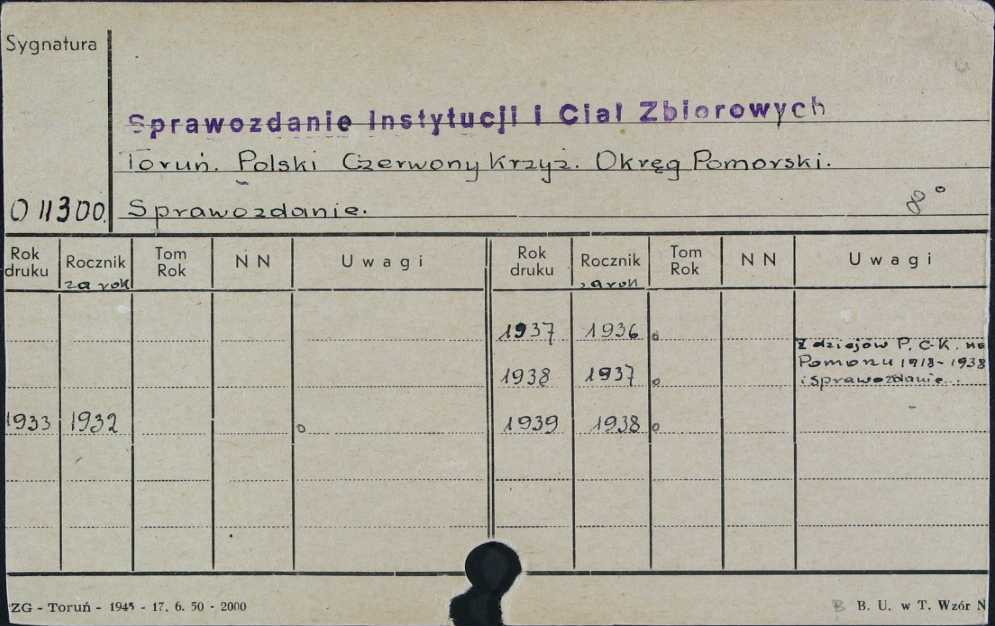 Sygnatura
Sprawozdanie Instytucji i Ciał Zbiorowych
Toruń. Polski Czerwony Krzyż. Okręg Pomorski.
O 11300. Sprawozdanie. 8°
Rok druku Rocznik za rok Tom Rok NN Uwagi Rok druku Rocznik za rok Tom Rok NN Uwagi
1937 1936 o
Z dziejów P.C.K. na
Pomorzu 1918-1938
i sprawozdanie.
1938 1937 o
1933 1932 o 1939 1938 o
ZG - Toruń - 1945 - 17. 6. 50 - 2000 B B. U. w T. Wzór N